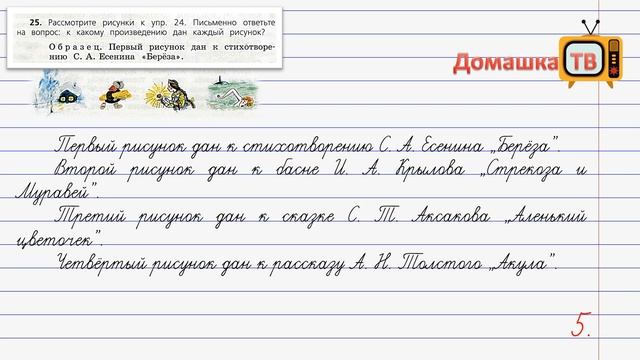 25. Рассмотрите рисунки к упр. 24. Письменно ответьте
на вопрос: к какому произведению дан каждый рисунок?
Образец. Первый рисунок дан к стихотворе-
нию С. А. Есенина «Берёза».
Домашка ТВ
Первый рисунок дан к стихотворению С. А. Есенина „Берёза”.
Второй рисунок дан к басне И. А. Крылова „Стрекоза и
Муравей”.
Третий рисунок дан к сказке С. Т. Аксакова „Аленький
цветочек”.
Четвёртый рисунок дан к рассказу А. Н. Толстого „Акула”.
5.